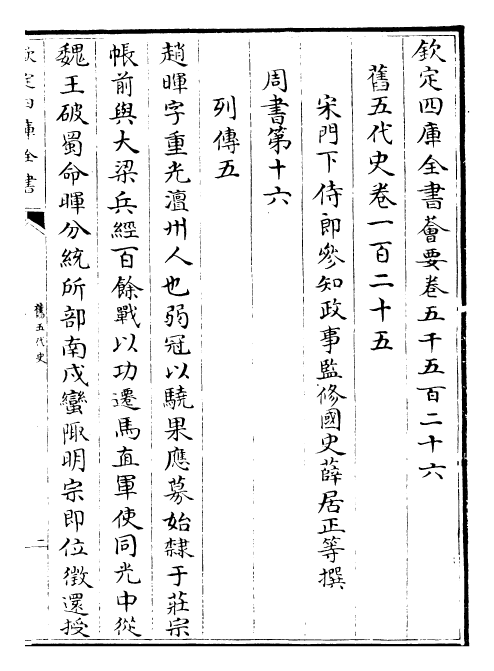 欽定四庫全書薈要卷五千五百二十六
舊五代史卷一百二十五
宋門下侍郎參知政事監修國史薛居正等撰
周書第十六
列傳五
趙暉字重光澶州人也弱冠以驍果應募始隸于莊宗
帳前與大梁兵經百餘戰以功遷馬直軍使同光中從
魏王破蜀命暉分統所部南戍蠻陬明宗即位徵還授
欽定四庫全書
舊五代史